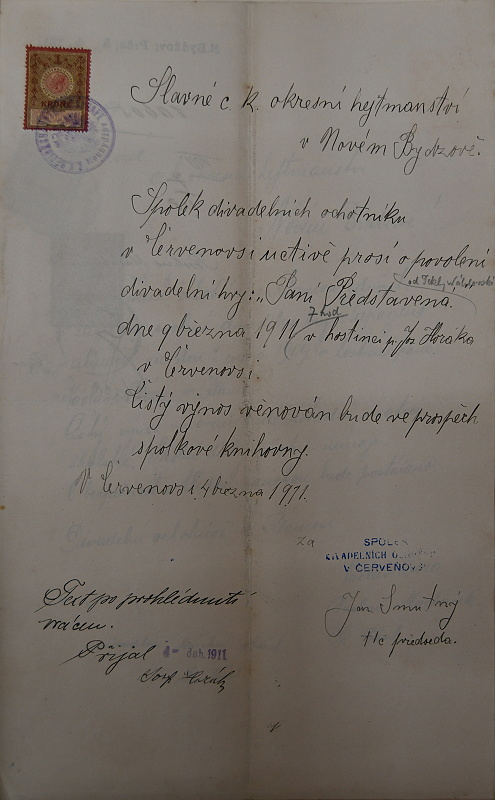 Slavné c. k. okresní hejtmanství
v Novém Bydžově.
Spolek divadelních ochotníku
v Červenovsi uctivě prosí o povolení
divadelní hry: „Paní Představena.
7 hod
dne 9 března 1911 v hostinci p. Jos Horáka
v Červenovsi.
Čistý výnos věnován bude ve prospěch
spolkové knihovny.
V Červenovsi 4 března 1911.
za
SPOLEK
DIVADELNÍCH
V ČERVEŇOVSI
Jan Smutný
t/c předseda.
Text po prohlédnutí
vrácen.
Přijal 4- dub. 1911